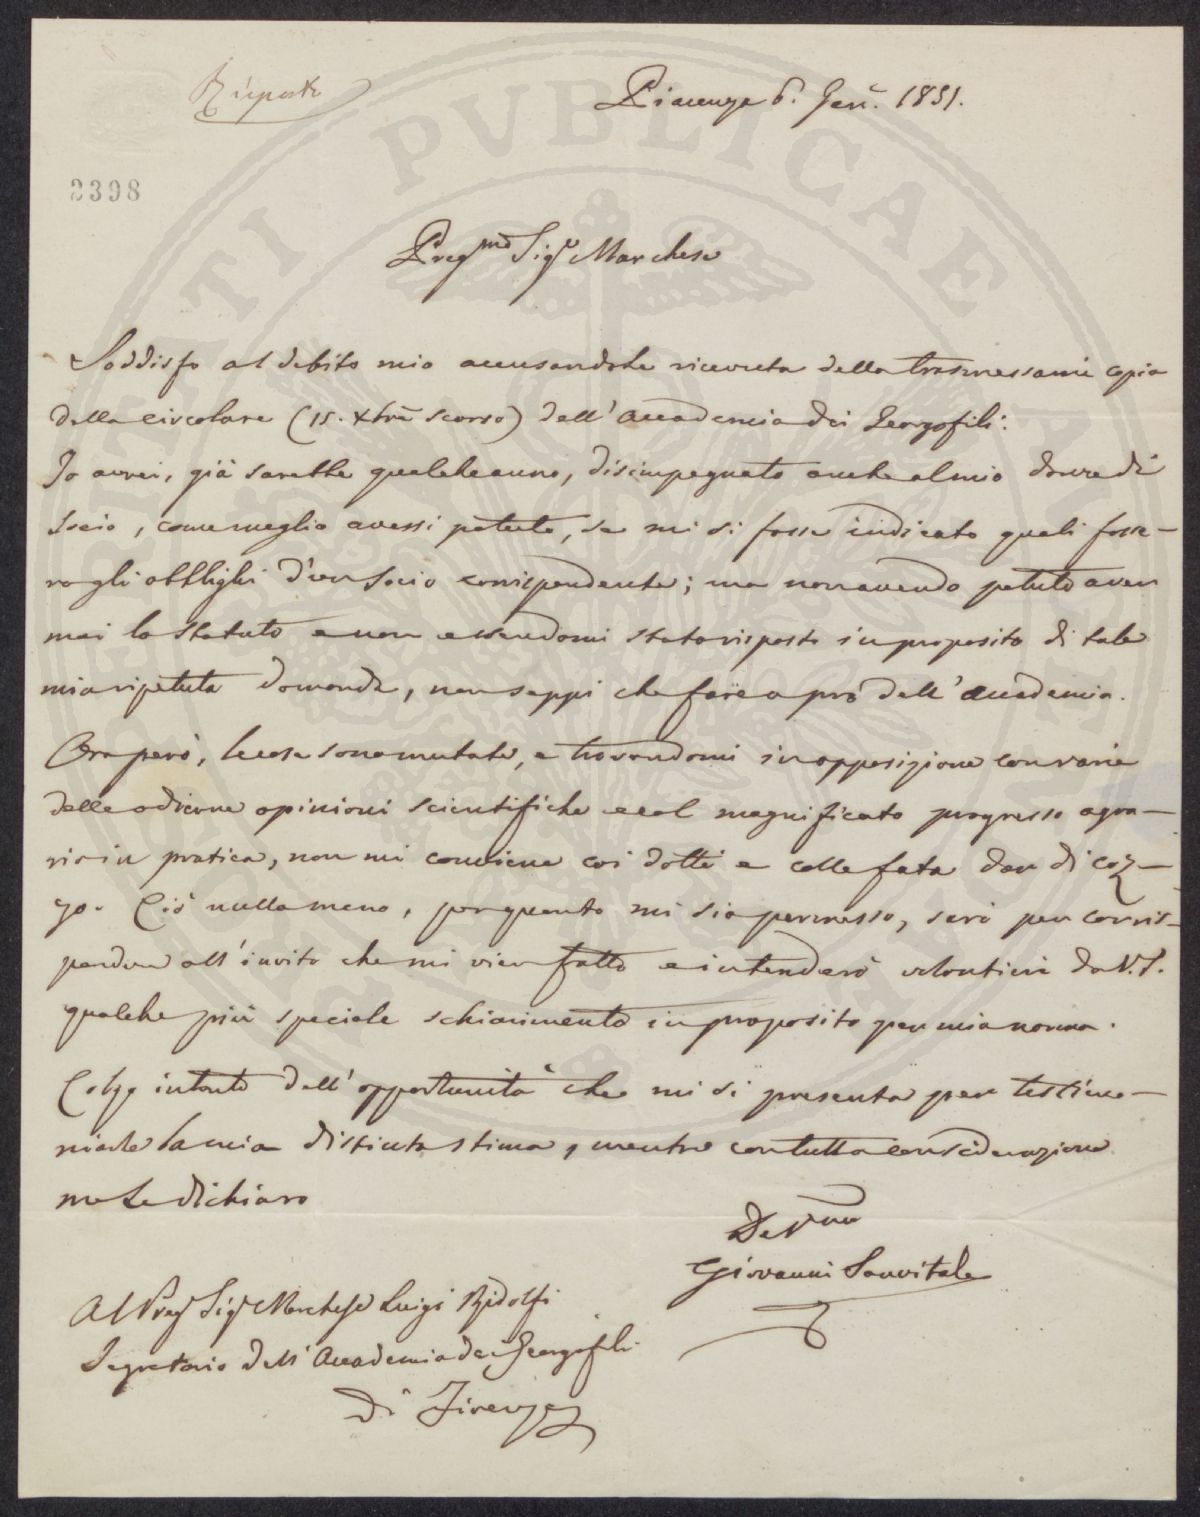 Risposto
Piacenza 6. Genn. 1851.
2398
Preg.mo Sig.r Marchese
Soddisfo al debito mio accusandole ricevuta della trasmessami copia
della circolare (15. Xbre scorso) dell' Accademia dei Georgofili.
Io avrei, già sarebbe qualche anno, disimpegnato anche al mio dovere di
Socio, come meglio avessi potuto, se mi si fosse indicato quali fosse-
ro gli obblighi d'un Socio corrispondente; ma non avendo potuto aver
mai lo Statuto e non essendomi stato risposto in proposito di tale
mia ripetuta domanda, non seppi che fare a pro dell' Accademia.
Ora però, le cose sono mutate, e trovandomi in opposizione con varie
delle odierne opinioni scientifiche e col magnificato progresso agra-
rio in pratica, non mi conviene coi dotti e colle fata dar di coz-
zo. Ciò nullameno, per quanto mi sia permesso, sarò per corris-
pondere all' invito che mi vien fatto e intenderò volontieri da V.S.
qualche più speciale schiarimento in proposito per mia norma.
Colgo intanto dell' opportunità che mi si presenta per testimo-
niarle la mia distinta stima, mentre con tutta considerazione
me Le dichiaro
Dev.mo
Giovanni Sanvitale
Al Preg. Sig. Marchese Luigi Ridolfi
Segretario dell' Accademia dei Georgofili
di Firenze
PVBLICAE